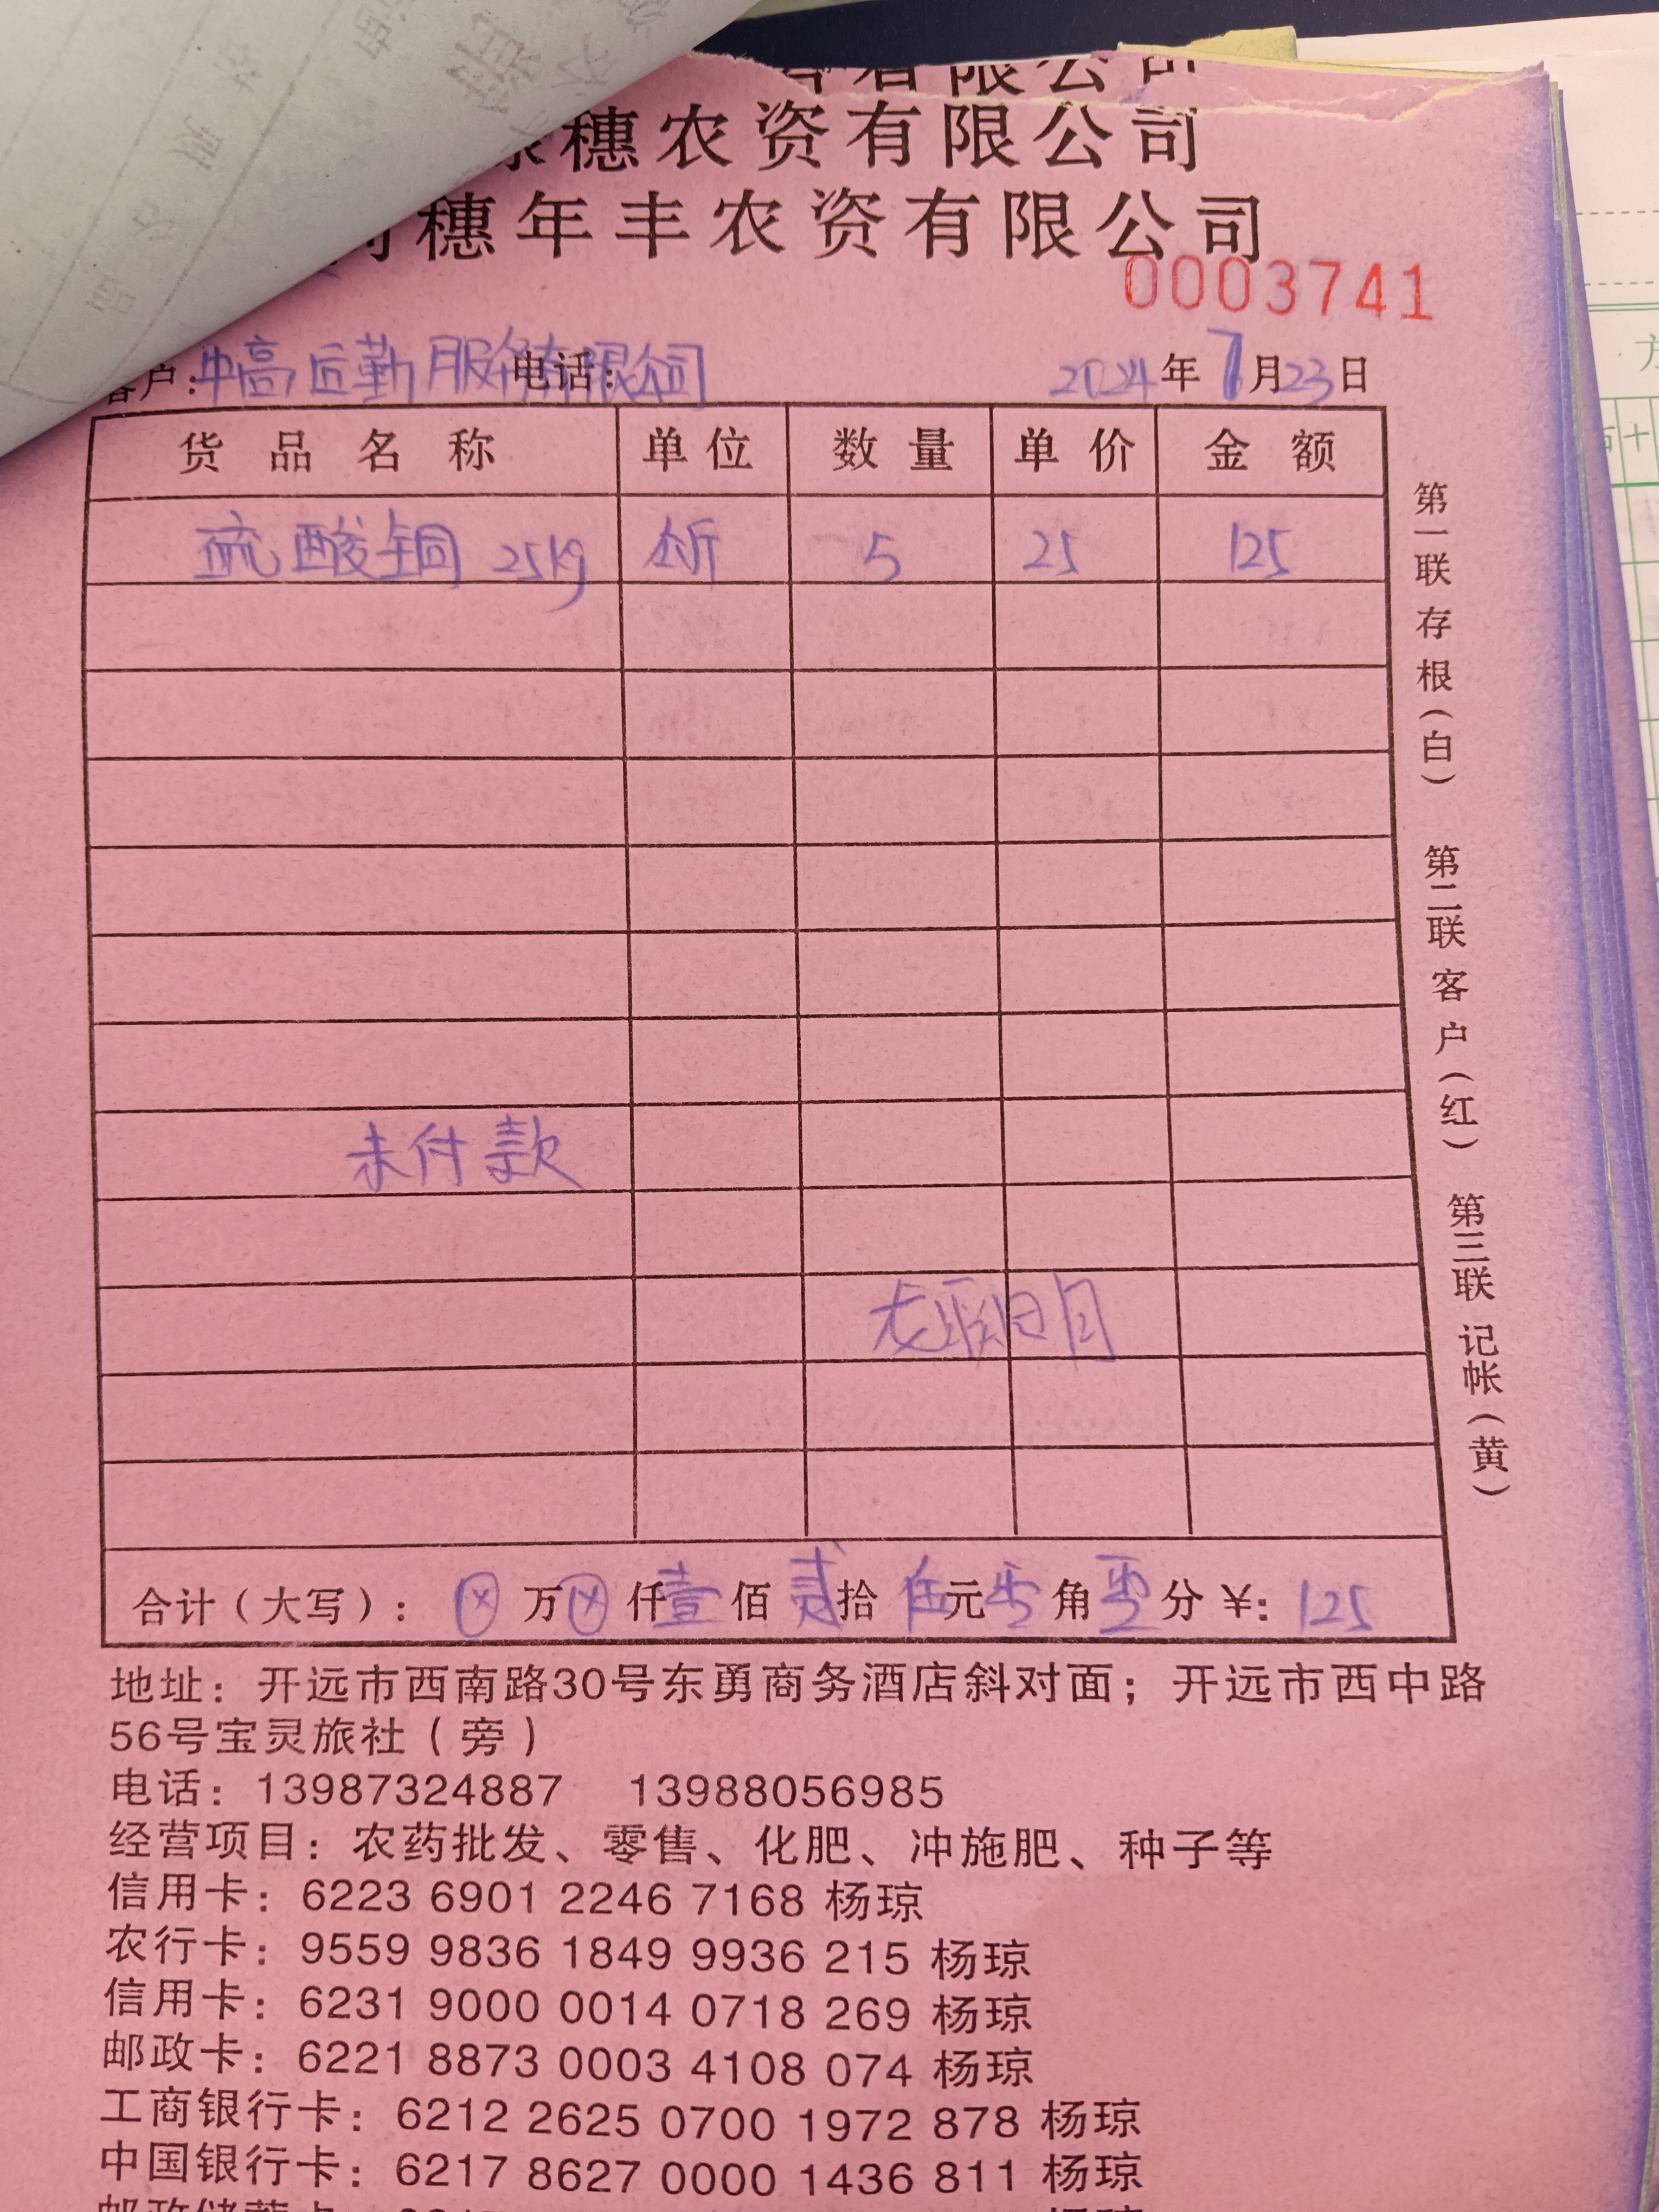 有限公司
穗农资有限公司
穗年丰农资有限公司
0003741
客户: 高后勤服务有限公司 电话: 2024年7月23日
货品名称 单位 数量 单价 金额
硫酸铜 25kg 公斤 5 25 125
未付款
合计(大写): ⊗万⊗仟壹佰贰拾伍元零角零分 ¥: 125
第一联存根(白) 第二联客户(红) 第三联记帐(黄)
地址: 开远市西南路30号东勇商务酒店斜对面; 开远市西中路
56号宝灵旅社(旁)
电话: 13987324887 13988056985
经营项目: 农药批发、零售、化肥、冲施肥、种子等
信用卡: 6223 6901 2246 7168 杨琼
农行卡: 9559 9836 1849 9936 215 杨琼
信用卡: 6231 9000 0014 0718 269 杨琼
邮政卡: 6221 8873 0003 4108 074 杨琼
工商银行卡: 6212 2625 0700 1972 878 杨琼
中国银行卡: 6217 8627 0000 1436 811 杨琼